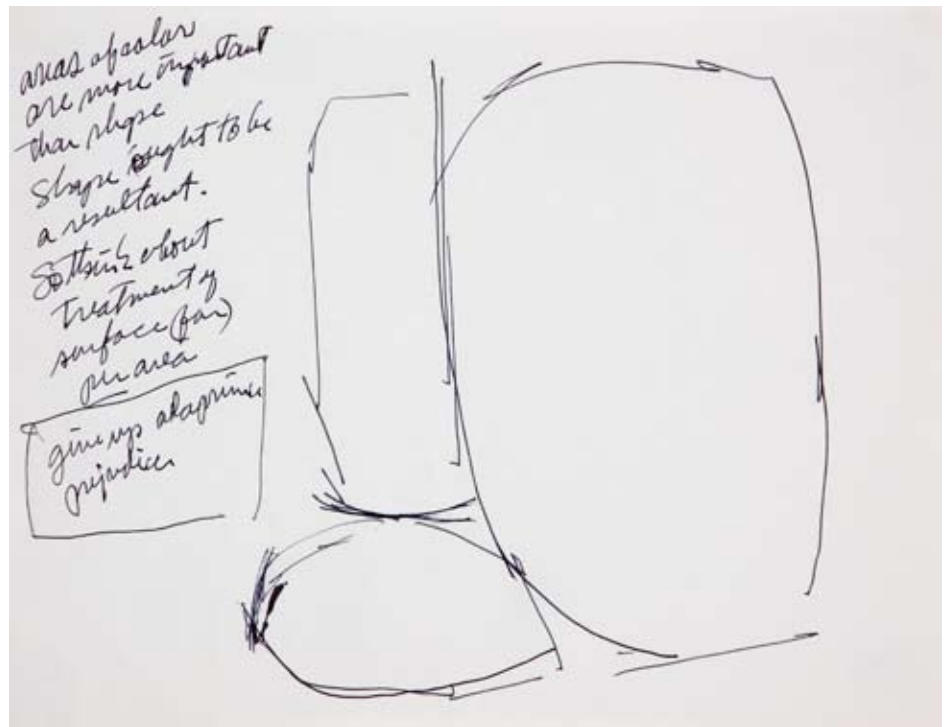 areas of color
are more important
than shape
Shape ought to be
a resultant.
So think about
treatment of
surface (par)
per area
give up
prejudices